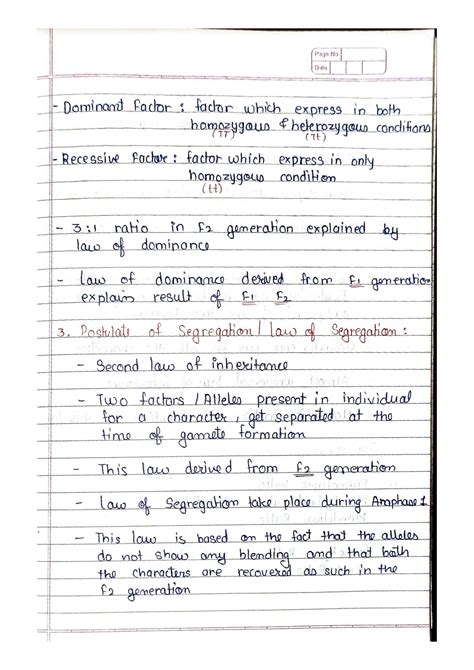 Page No
Date
- Dominant factor : factor which express in both
homozygous & heterozygous conditions
(TT) (Tt)
- Recessive factor : factor which express in only
homozygous condition
(tt)
- 3:1 ratio in F2 generation explained by
law of dominance
- law of dominance derived from F1 generation
explain result of F1 F2
3. Postulate of Segregation / law of Segregation :
- Second law of inheritance
- Two factors / Alleles present in individual
for a character, get separated at the
time of gamete formation
- This law derived from F2 generation
- law of Segregation take place during Anaphase 1
- This law is based on the fact that the alleles
do not show any blending and that both
the characters are recovered as such in the
F2 generation